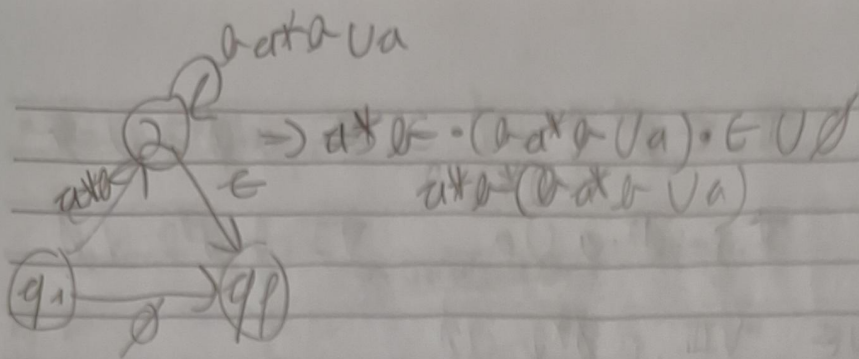 ba*b ∪ a
2
⇒ a*b · (ba*b ∪ a) · ε ∪ ∅
a*b
ε
a*b(ba*b ∪ a)
q₁
qf
∅